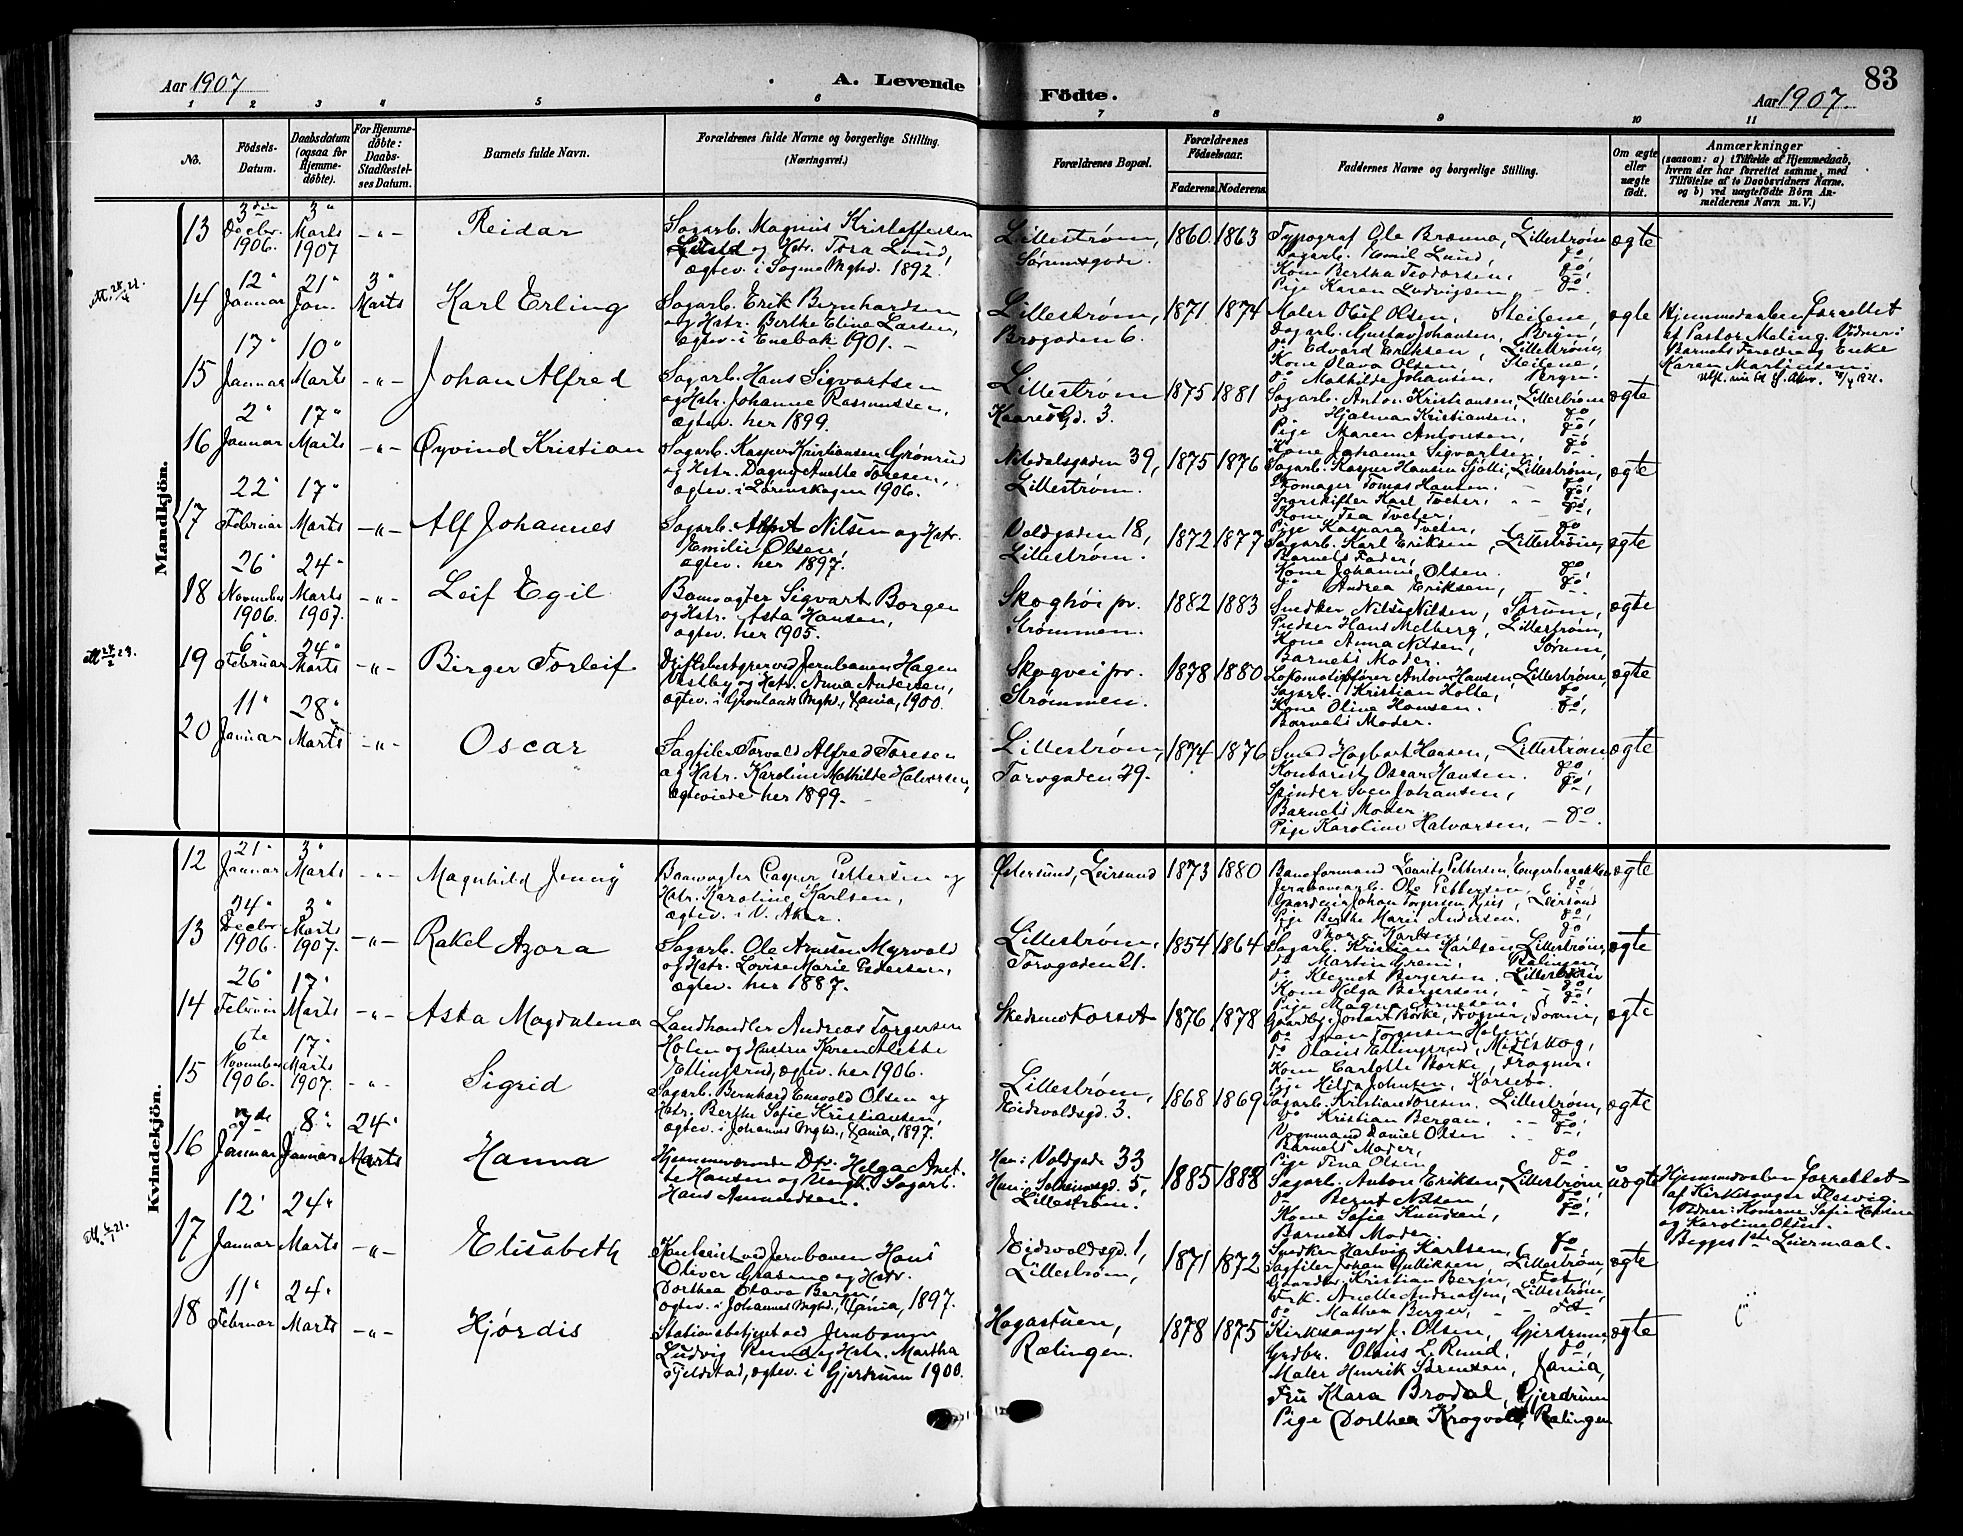 Aar 1907
A. Levende Födte.
83
Aar 1907.
1 2 3 4 5 6 7 8 9 10 11
No.
Födsels-Datum.
Daabsdatum (ogsaa for Hjemme-døbte).
For Hjemme-døbte: Daabs-Stadfæstel-ses Datum.
Barnets fulde Navn.
Forældrenes fulde Navne og borgerlige Stilling.
(Næringsvei.)
Forældrenes Bopæl.
Forældrenes Födselsaar.
Faderens. Moderens.
Faddernes Navne og borgerlige Stilling.
Om ægte eller uægte födt.
Anmærkninger
(saasom: a) i Tilfælde af Hjemmedaab,
hvem der har forrettet samme, med
Tilföielse af to Daabsvidners Navne,
og b) ved uægtefödte Börn An-
melderens Navn m. V.)
Mandkjön.
13 3die Decbr. 1906. 3" Marts 1907 -"- Reidar
Sagarb. Magnus Kristoffersen
Lund og Hstr. Tora Lund,
ægtev. i Sogne Mghd. 1892.
Lillestrøm, 1860 1863
Typograf Ole Brænna, Lillestrøm ægte
Sagarb. Emil Lund, do,
Kone Bertha Teodorsen, do,
Pige Karen Ludvigsen - do.
14 12" Januar 21" Jan. 3" Marts Karl Erling
Sagarb. Erik Bernhardsen
og Hstr. Berthe Eline Larsen,
ægtev. i Enebak 1901. -
Lillestrøm, Brogaden 6. 1871 1874
Maler Oluf Olsen, Steilene, ægte
Sagarb. Gustav Johansen, Bergen,
do Edvard Eriksen, Lillestrøm,
Kone Olava Olsen, Steilene,
do Mathilde Johansen, Bergen.
Hjemmedaaben forrettet
af Pastor Meling. Vidner:
Barnets Forældre og Enke
Karen Martinsen.
15 17" Januar 10" Marts -"- Johan Alfred
Sagarb. Hans Sigvartsen
og Hstr. Johanne Rasmussen,
ægtev. her 1899.
Lillestrøm 3. 1875 1881
Sagarb. Anton Kristiansen, Lillestrøm ægte
do Hjalmar Kristiansen. do,
Pige Maren Antonsen, do,
Kone Johanne Sigvartsen, do.
16 2" Januar 17" Marts -"- Øyvind Kristian
Sagarb. Kasper Kristiansen Grønrud
og Hstr. Dagny Anette Toresen,
ægtev. i Lørenskogen 1906.
Nitedalsgaden 39, Lillestrøm. 1875 1876
Sagarb. Kasper Hansen Sjølli, Lillestrøm, ægte
Skomager Tomas Hansen. do,
Sporskifter Karl Tveter, do,
Kone Tea Tveter, do,
Pige Kaspara Tveter, do
17 22" Februar 17" Marts -"- Alf Johannes
Sagarb. Nilsen og Hstr.
Emilie Olsen,
ægtev. her 1897.
Voldgaden 18, Lillestrøm. 1872 1877
Sagarb. Karl Eriksen, Lillestrøm, ægte
Barnets Fader,
Kone Johanne Olsen. do,
do Andrea Eriksen, do.
18 26" November 1906. 24" Marts 1907. -"- Leif Egil
Banevogter Sigvart Borgen
og Hstr. Asta Hansen,
ægtev. her 1905.
Skoghøi pr. Strømmen. 1882 1883
Snedker Nils Nilsen, Sørum, ægte
Pudser Hans Melberg, Lillestrøm,
Kone Anna Nilsen, Sørum,
Barnets Moder.
19 6" Februar 24" Marts -"- Birger Torleif
ved Jernbanen Hagen
Vestby og Hstr. Anna Andersen,
ægtev. i Grønlands Mghd., Xania, 1900.
Skogvei pr. Strømmen. 1878 1880
Lokomotivfører Anton Hansen, Lillestrøm, ægte
Sagarb. Kristian Holte, do,
Kone Olive Hansen. do,
Barnets Moder.
20 11" Januar 28" Marts -"- Oscar
Sagfiler Torvald Alfred Toresen
og Hstr. Karoline Mathilde Halvorsen,
ægteviede her 1899.
Lillestrøm, Torvgaden 29. 1874 1876
Smed Hagbart Hansen, Lillestrøm ægte
Kontorist Oscar Hansen. do,
Spinder Sven Johansen, do,
Barnets Moder,
Pige Karoline Halvorsen, - do.
Kvindekjön.
12 21" Januar 3" Marts -"- Magnhild Jenny
Banevogter Casper Pettersen og
Hstr. Karoline Karlsen,
ægtev. i V. Aker.
Østersund, Leirsund 1873 1880
Baneformand Lauritz Pettersen, ægte
Jernbanearb. Ole Pettersen, do,
Gaardeier Johan Torgersen, Leirsund
Pige Berthe Marie Andersen. do,
13 24" Decbr 1906. 3" Marts 1907. -"- Rakel Azora
Sagarb. Ole Arnesen Myrvold
og Hstr. Lovise Marie Pedersen,
ægtev. her 1887.
Lillestrøm, Torvgaden 21. 1854 1864
Sagarb. Kristian Karlsen, Lillestrøm, ægte
do Martin Greni, Rælingen,
do Klemet Bergersen. Lillestrøm
Kone Helga Bergersen, do,
Pige Magna Arnesen. do
14 26" Februar 17" Marts -"- Asta Magdalena
Landhandler Andreas Torgersen
Holen og Hustru Karen Alette
Ellingsrud, ægtev. her 1906.
Skedsmokorset 1876 1878
Gaardbr. Borke, Frogner, Sørum, ægte
do Torgersen Holen,
do Olaus Ellingsrud, Mittskog,
Kone Carlotte Borke, Frogner.
Pige Hilda Johnsen, Korsebo.
15 6te November 1906. 17" Marts 1907. -"- Sigrid
Sagarb. Bernhard Enevold Olsen og
Hstr. Berthe Sofie Kristiansen,
ægtev. i Johannes Mghd., Xania, 1897.
Lillestrøm, Eidsvoldsgd. 3. 1868 1869
Sagarb. Kristian Toresen. Lillestrøm, ægte
do Kristian Bergan, do,
Vognmand Daniel Olsen do,
Barnets Moder,
Pige Tina Olsen, do
16 Januar 8" Januar 24" Marts Hanna
Hjemmeværende Dtr. Helga Anet-
te Hansen og Ungk. Sagarb.
Hans Amundsen.
Han: Voldgade 33
Hun: 5, Lillestrøm. 1885 1888
Sagarb. Anton Eriksen, Lillestrøm, uægte
do Bernt Nilsen do,
Kone Sofie Knudsen, do,
Barnets Moder.
Hjemmedaaben forrettet
af Kirkesanger Flesvig.
Vidner: Konerne Sofie Hansen
og Karoline Olsen.
Begges 1ste Leiermaal.
17 12" Januar 24" Marts -"- Elisabeth
Kontorist ved Jernbanen Hans
Oliver og Hstr.
Dorthea Olava Berger,
ægtev. i Johannes Mghd., Xania, 1897.
Eidsvoldsgd. 1, Lillestrøm, 1871 1872
Snedker Hartvig Karlsen, do
Sagfiler Johan Gulliksen, Lillestrøm, ægte
Gaardbr. Kristian Berger, Fet,
Frk. Anette Andreassen, Lillestrøm,
do Mathea Berger, - Fet.
18 11" Februar 24" Marts -"- Hjørdis
Stationsbetjent ved Jernbanen
Ludvig Ruud og Hstr. Martha
Fjeldstad, ægtev. i Gjerdrum 1900.
Hagastuen, Rælingen. 1878 1875
Kirkesanger J. Olsen, Gjerdrum, ægte
Grdbr. Olaus L. Ruud, do,
Maler Henrik Sørensen, Xania,
Fru Klara Brodal, Gjerdrum
Pige Dorthea Krogvold, Rælingen